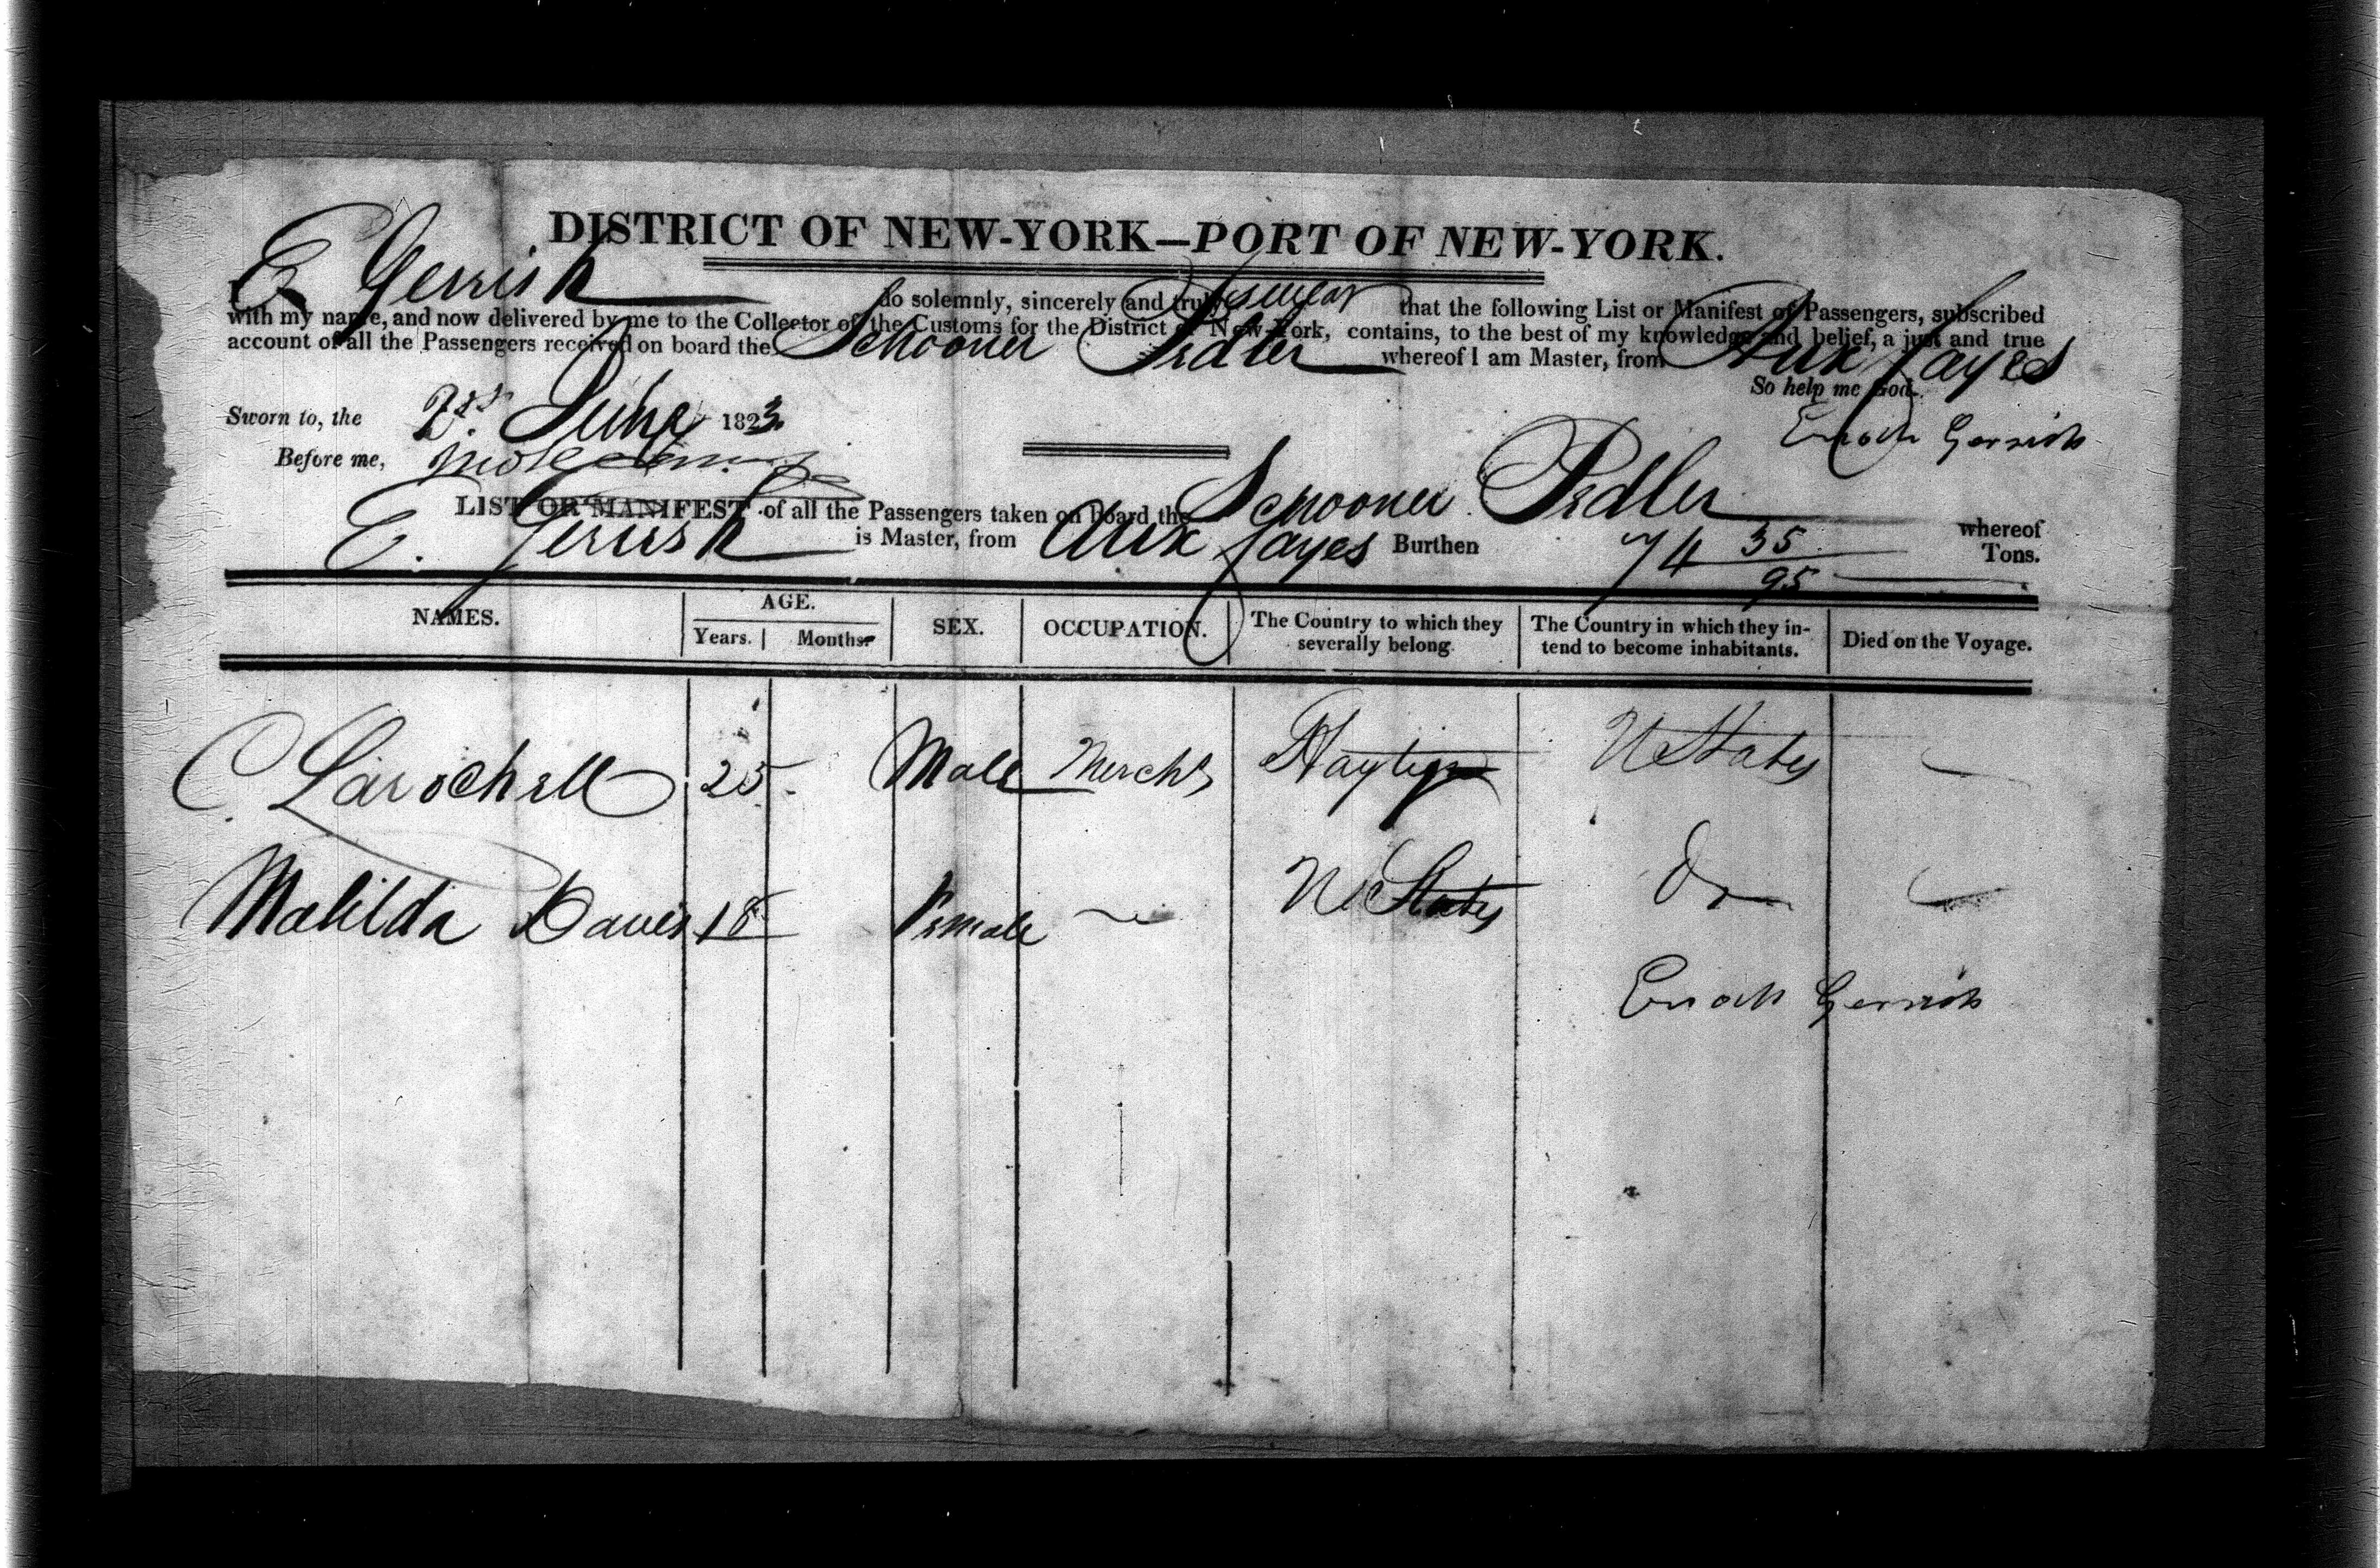 DISTRICT OF NEW-YORK—PORT OF NEW-YORK.
E Gerrish do solemnly, sincerely and truly swear that the following List or Manifest of Passengers, subscribed
with my name, and now delivered by me to the Collector of the Customs for the District of New-York, contains, to the best of my knowledge and belief, a just and true
account of all the Passengers received on board the Schooner Pedler whereof I am Master, from Aux Cayes
So help me God.
Sworn to, the June 1823
Enoch Gerrish
Before me,
LIST OR MANIFEST of all the Passengers taken on board the Schooner Pedler whereof
E. Gerrish is Master, from Aux Cayes Burthen 74 35/95 Tons.
NAMES. AGE. Years. Months. SEX. OCCUPATION. The Country to which they severally belong. The Country in which they intend to become inhabitants. Died on the Voyage.
C. Larochell 25 Male Mercht Haytien U States
Matilda Davis 18 Female U States Do
Enoch Gerrish